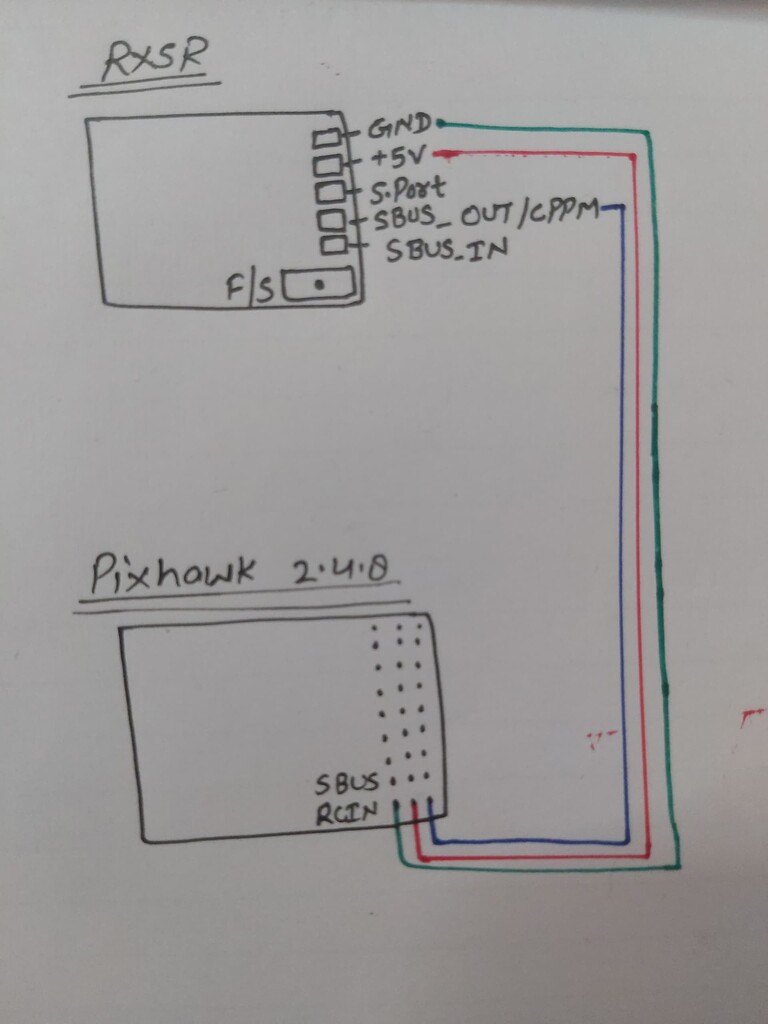 RXSR
GND
+5V
S.Port
SBUS_OUT/CPPM
SBUS_IN
F/S
Pixhawk 2.4.8
SBUS
RCIN